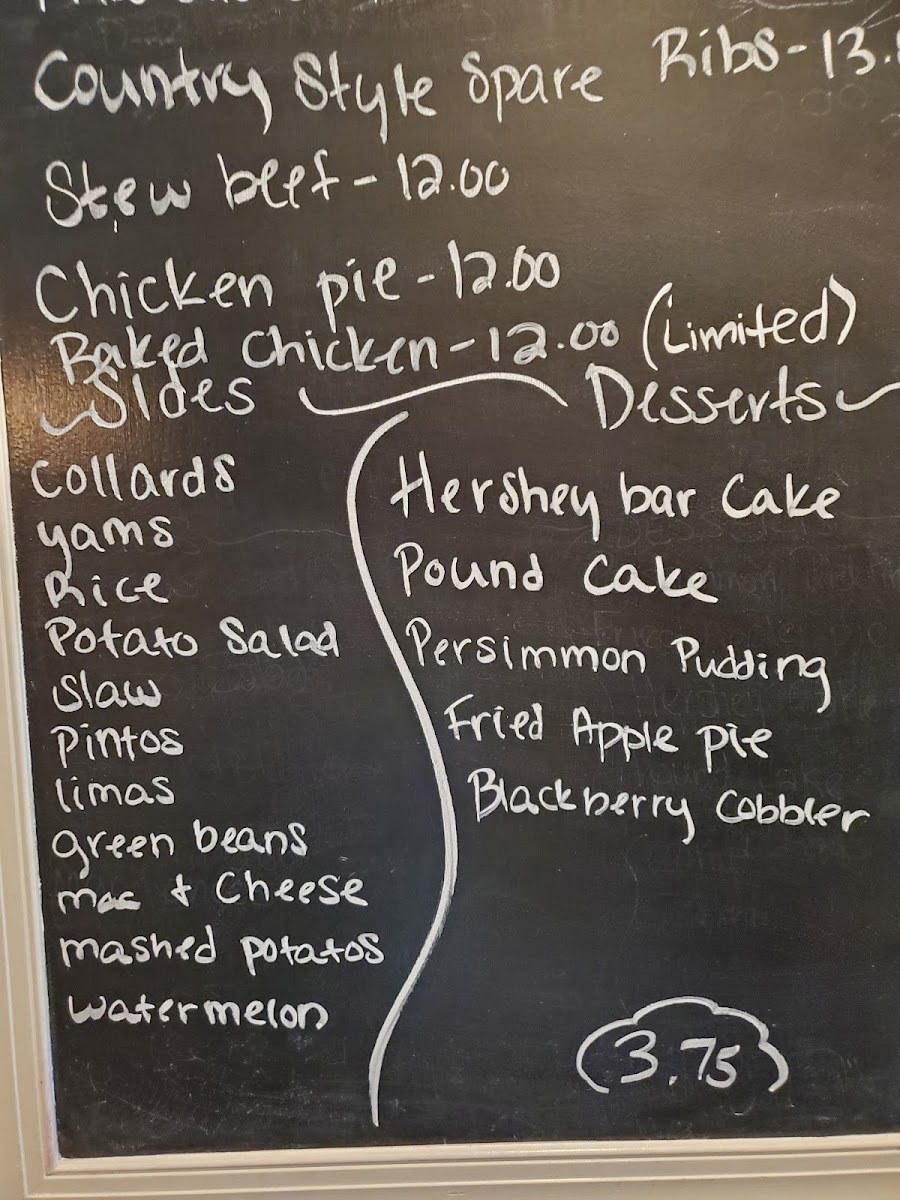 Country Style Spare Ribs-13.
Stew beef-12.00
Chicken pie-12.00
Baked Chicken-12.00 (Limited)
Sides
Collards
yams
Rice
Potato Salad
Slaw
Pintos
limas
green beans
mac & Cheese
mashed potatos
watermelon
Desserts
Hershey bar Cake
Pound Cake
Persimmon Pudding
Fried Apple pie
Blackberry Cobbler
3.75